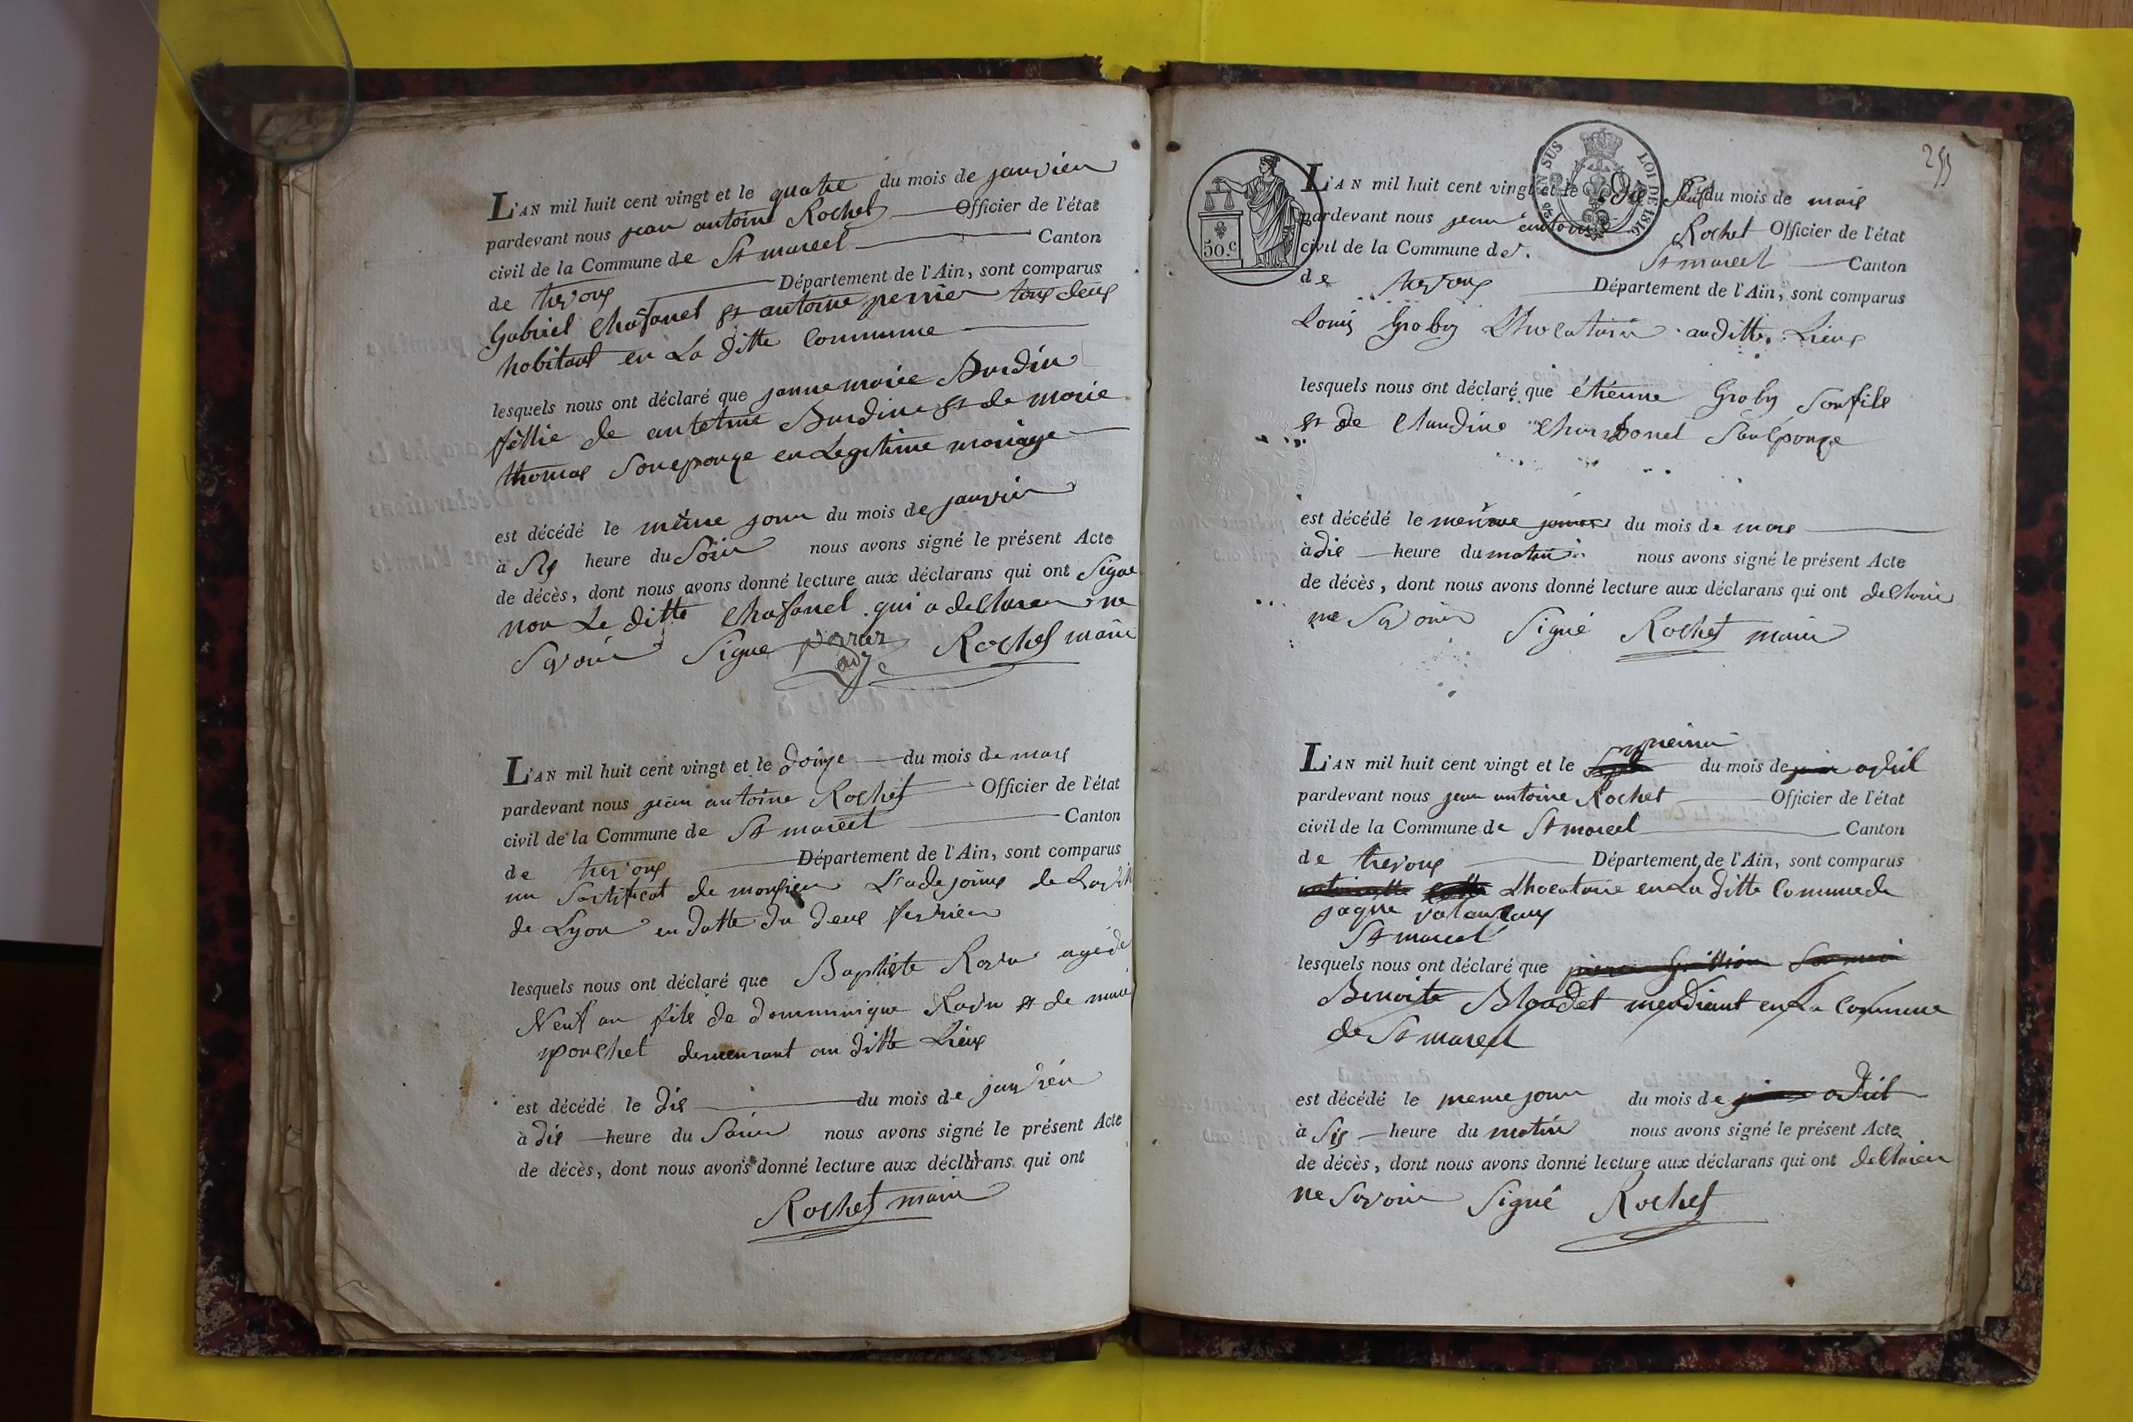 L'AN mil huit cent vingt et le quatre du mois de janvier
pardevant nous jean antoine Rochet Officier de l'état
civil de la Commune de St marcel Canton
de trevoux Département de l'Ain, sont comparus
Gabriel Chafanel et antoine perrier tous deux
habitant en La ditte Commune
lesquels nous ont déclaré que janne marie Burdin
fillie de antelme Burdin et de marie
thomas Son epouze en Legitime mariage
est décédé le même jour du mois de janvier
à Six heure du Soir nous avons signé le présent Acte
de décès, dont nous avons donné lecture aux déclarans qui ont Signe
non Le ditte Chafanel qui a declarer ne
Savoir Signe perrier Rochet maire
L'AN mil huit cent vingt et le douze du mois de mars
pardevant nous jean antoine Rochet Officier de l'état
civil de la Commune de St marcel Canton
de trevoux Département de l'Ain, sont comparus
un Sertificat de monsieur L'adejoint de La
de Lyon en datte du deux fevrier
lesquels nous ont déclaré que Baptiste agé de
Neuf an fils de dommunique et de marie
ponchet demeurant au ditte Lieux
est décédé le dix du mois de janvier
à dix heure du Soir nous avons signé le présent Acte
de décès, dont nous avons donné lecture aux déclarans qui ont
Rochet maire
255
50.c
EN SUS LOI DE 1816
L'AN mil huit cent vingt et le Dix Neuf du mois de mars
pardevant nous jean antoine Rochet Officier de l'état
civil de la Commune de St marcel Canton
de trevoux Département de l'Ain, sont comparus
Louis Groboz Lhocataire au ditte Lieux
lesquels nous ont déclaré que étienne Groboz Son fils
et de Claudine Charbonel Son Epouze
est décédé le meme jour du mois de mars
à dix heure du matin nous avons signé le présent Acte
de décès, dont nous avons donné lecture aux déclarans qui ont declaire
ne Savoir Signé Rochet maire
L'AN mil huit cent vingt et le premier du mois de avril
pardevant nous jean antoine Rochet Officier de l'état
civil de la Commune de St marcel Canton
de trevoux Département de l'Ain, sont comparus
Lhocataire en La ditte Commune de
jaque
St marcel
lesquels nous ont déclaré que
Benoite Blondet mendiant en La Commune
de St marcel
est décédé le meme jour du mois de avril
à Six heure du matin nous avons signé le présent Acte
de décès, dont nous avons donné lecture aux déclarans qui ont declairer
ne Savoir Signé Rochet